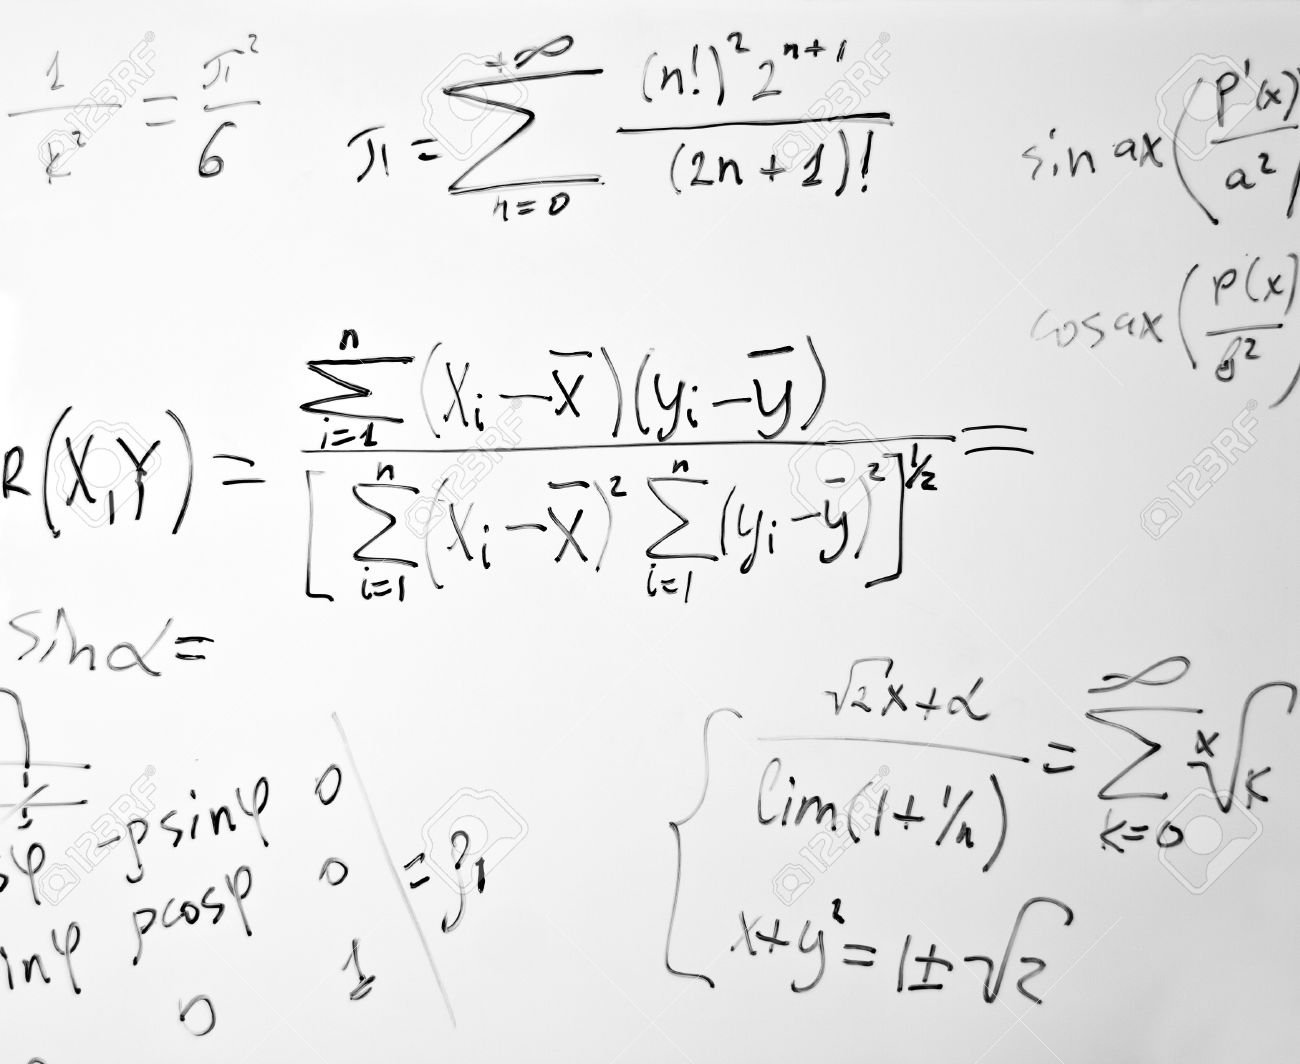 1/k² = π²/6
π = ∑_{n=0}^{+∞} (n!)² 2^{n+1} / (2n+1)!
sin ax (P'(x)/a²
cos ax (P(x)/b²)
R(X,Y) = ∑_{i=1}^{n} (x_i - x̄)(y_i - ȳ) / [∑_{i=1}^{n} (x_i - x̄)² ∑_{i=1}^{n} (y_i - ȳ)²]^{1/2} =
sin α =
-ρ sin φ 0
ρ cos φ 0 = ρ1
in φ 0 1
{ √2x + α / lim(1 + 1/n) = ∑_{k=0}^{∞} ˣ√k
x + y² = 1 ± √2
123RF
123RF
123RF
123RF
123RF
123RF
123RF
123RF